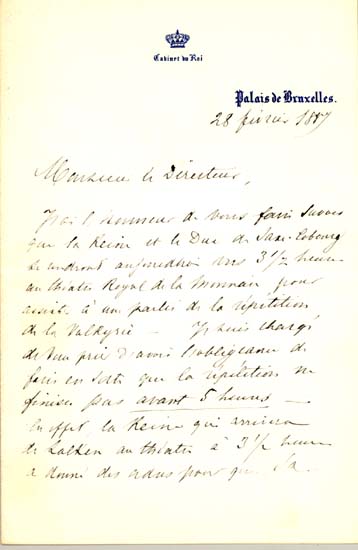 Cabinet du Roi
Palais de Bruxelles.
28 février 1887
Monsieur le Directeur,
J'ai l'honneur de vous faire savoir
que la Reine et le Duc de Saxe-Cobourg
se rendront aujourd'hui vers 3 1/2 heures
au théâtre Royal de la Monnaie pour
assister à une partie de la répétition
de la Valkyrie — Je suis chargé
de vous prier d'avoir l'obligeance de
faire en sorte que la répétition ne
finisse pas avant 5 heures —
En effet la Reine qui arrivera
de Laeken au théâtre à 3 1/2 heures
a donné des ordres pour que